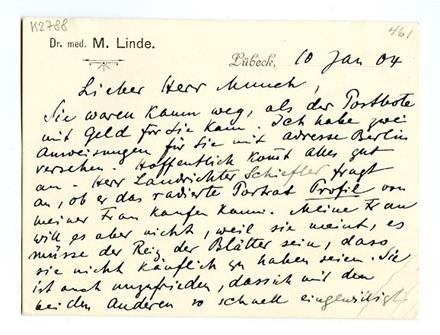 K2788
461
Dr. med. M. Linde.
Lübeck, 10 Jan 04
Lieber Herr Munch,
Sie waren kaum weg, als der Postbote
mit Geld für Sie kam. Ich habe zwei
Anweisungen für Sie mit adresse Berlin
versehen. Hoffentlich kommt alles gut
an. Herr Landrichter Schiefler fragt
an, ob er das radierte Portrat Profil von
meiner Frau kaufen kann. Meine Frau
will es aber nicht, weil sie meint, es
müsse der Reiz der Blätter sein, dass
sie nicht käuflich zu haben seien. Sie
ist auch unzufrieden, dass ich mit den
beiden anderen so schnell eingewilligt